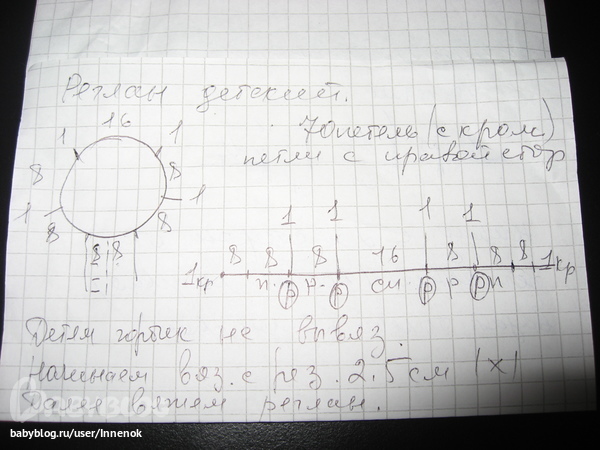 Реглан детский.
16
1 1
70 петель (с кром)
петли с правой стор
8 8
1 1
8 8
8 8
1 1 1 1
8 8 8 16 8 8 8
1кр п. Р р. Р сп Р р Р п 1кр
Детям горбик не вывяз.
Начинаем вяз. с рез. 2.5 см (х)
Далее вяжем реглан.
BABYBLOG
babyblog.ru/user/Innenok